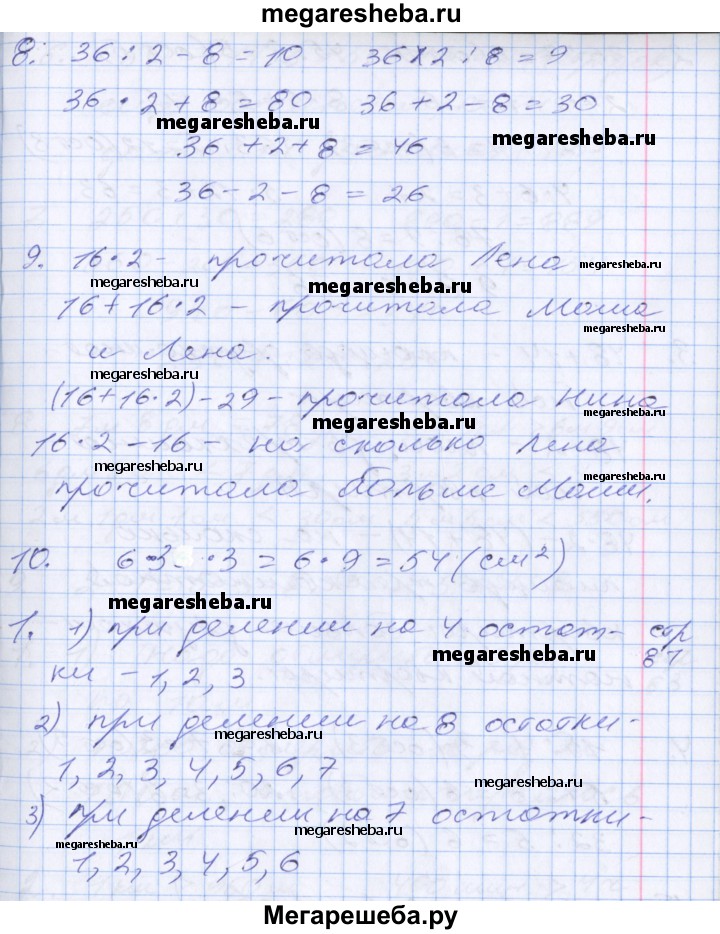 megaresheba.ru
8. 36 : 2 - 8 = 10 36 * 2 : 8 = 9
36 · 2 + 8 = 80 36 + 2 - 8 = 30
megaresheba.ru megaresheba.ru
36 + 2 + 8 = 46
36 - 2 - 8 = 26
9. 16 · 2 - прочитала Лена
megaresheba.ru megaresheba.ru megaresheba.ru
16 + 16 · 2 - прочитала Маша
megaresheba.ru
и Лена.
megaresheba.ru
(16 + 16 · 2) - 29 - прочитала Нина
megaresheba.ru megaresheba.ru
16 · 2 - 16 - на сколько Лена
megaresheba.ru megaresheba.ru
прочитала больше Маши.
10. 6 · 3 · 3 = 6 · 9 = 54 (см²)
megaresheba.ru
1. 1) при делении на 4 остат- стр
megaresheba.ru 87
ки - 1, 2, 3
2) при делении на 8 остатки -
megaresheba.ru
1, 2, 3, 4, 5, 6, 7
megaresheba.ru
3) при делении на 7 остатки -
megaresheba.ru
megaresheba.ru
1, 2, 3, 4, 5, 6
Мегарешеба.ру